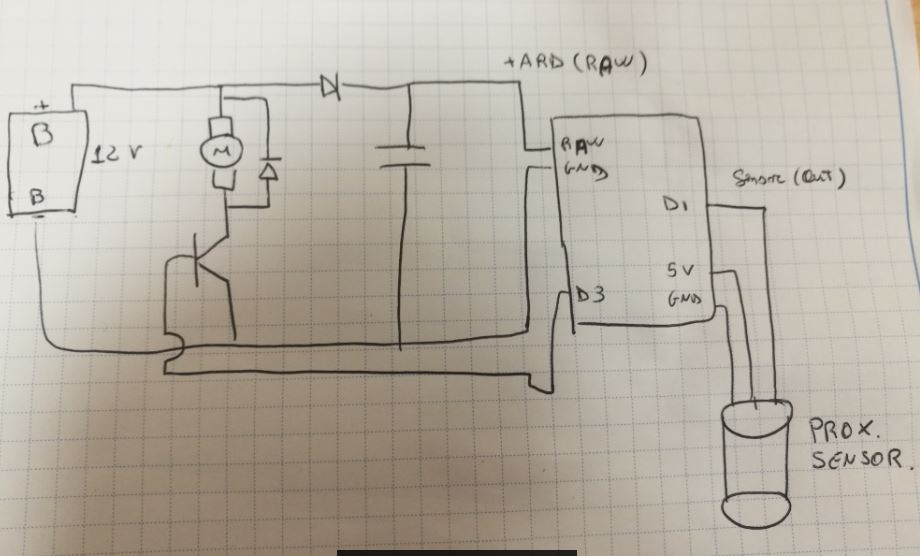 +ARD (RAW)
+
B
12 V
B
-
M
RAW
GND
D1
5V
GND
D3
Sensor (Out)
PROX.
SENSOR.